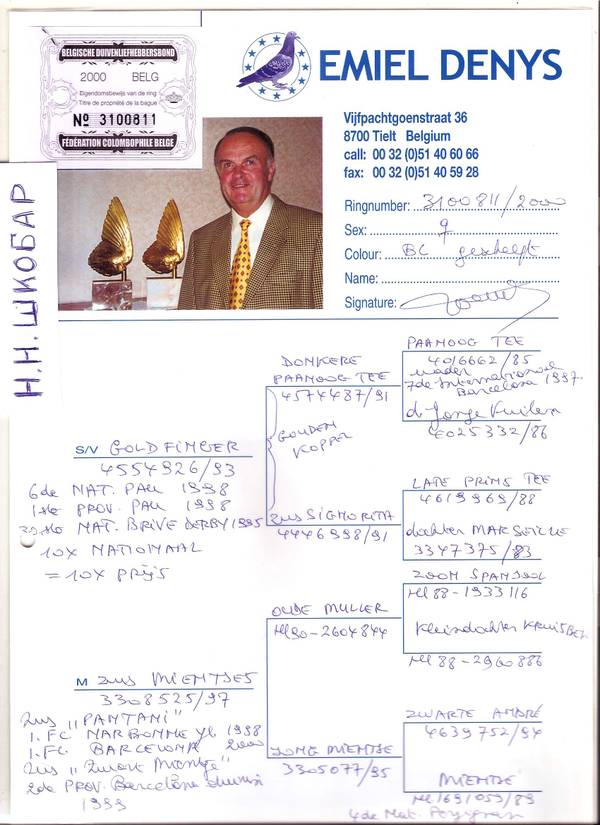 BELGISCHE DUIVENLIEFHEBBERSBOND
2000 BELG
Eigendomsbewijs van de ring
Titre de propriété de la bague
Nº 3100811
FÉDÉRATION COLOMBOPHILE BELGE
EMIEL DENYS
Vijfpachtgoenstraat 36
8700 Tielt Belgium
call: 00 32 (0)51 40 60 66
fax: 00 32 (0)51 40 59 28
Ringnumber: 3100811/2000
Sex: ♀
Colour: BC geschelpt
Name:
Signature:
Н.Н. ШКОБАР
S/V GOLDFINGER
4554926/93
6de NAT. PAU 1998
1ste PROV. PAU 1998
NAT. BRIVE DERBY 1995
10X NATIONAAL
= 10X PRIJS
M ZUS MIENTJES
3308525/97
ZUS "PANTANI"
1. FC NARBONNE YL 1998
1. FC BARCELONA 2000
ZUS "Zwart Mientje"
2de PROV. Barcelona
1999
DONKERE
PAANOOG TEE
4574487/91
GOUDEN
KOPPEL
ZUS SIGNORITA
4446998/91
OUDE MULLER
NL90-2604844
JONG MIENTJE
3305077/95
PAANOOG TEE
4016662/85
vader
7de Internationaal
Barcelona 1997
d. Jonge Kuilen
4025332/86
LATE PRINS TEE
4619969/88
dochter MARSEILLE
3347375/83
ZOON SPANJOOL
NL88-1933116
Kleindochter
NL88-2960886
ZWARTE ANDRÉ
4639752/94
MIENTJE
NL1691059/89
4de Nat. Perpignan